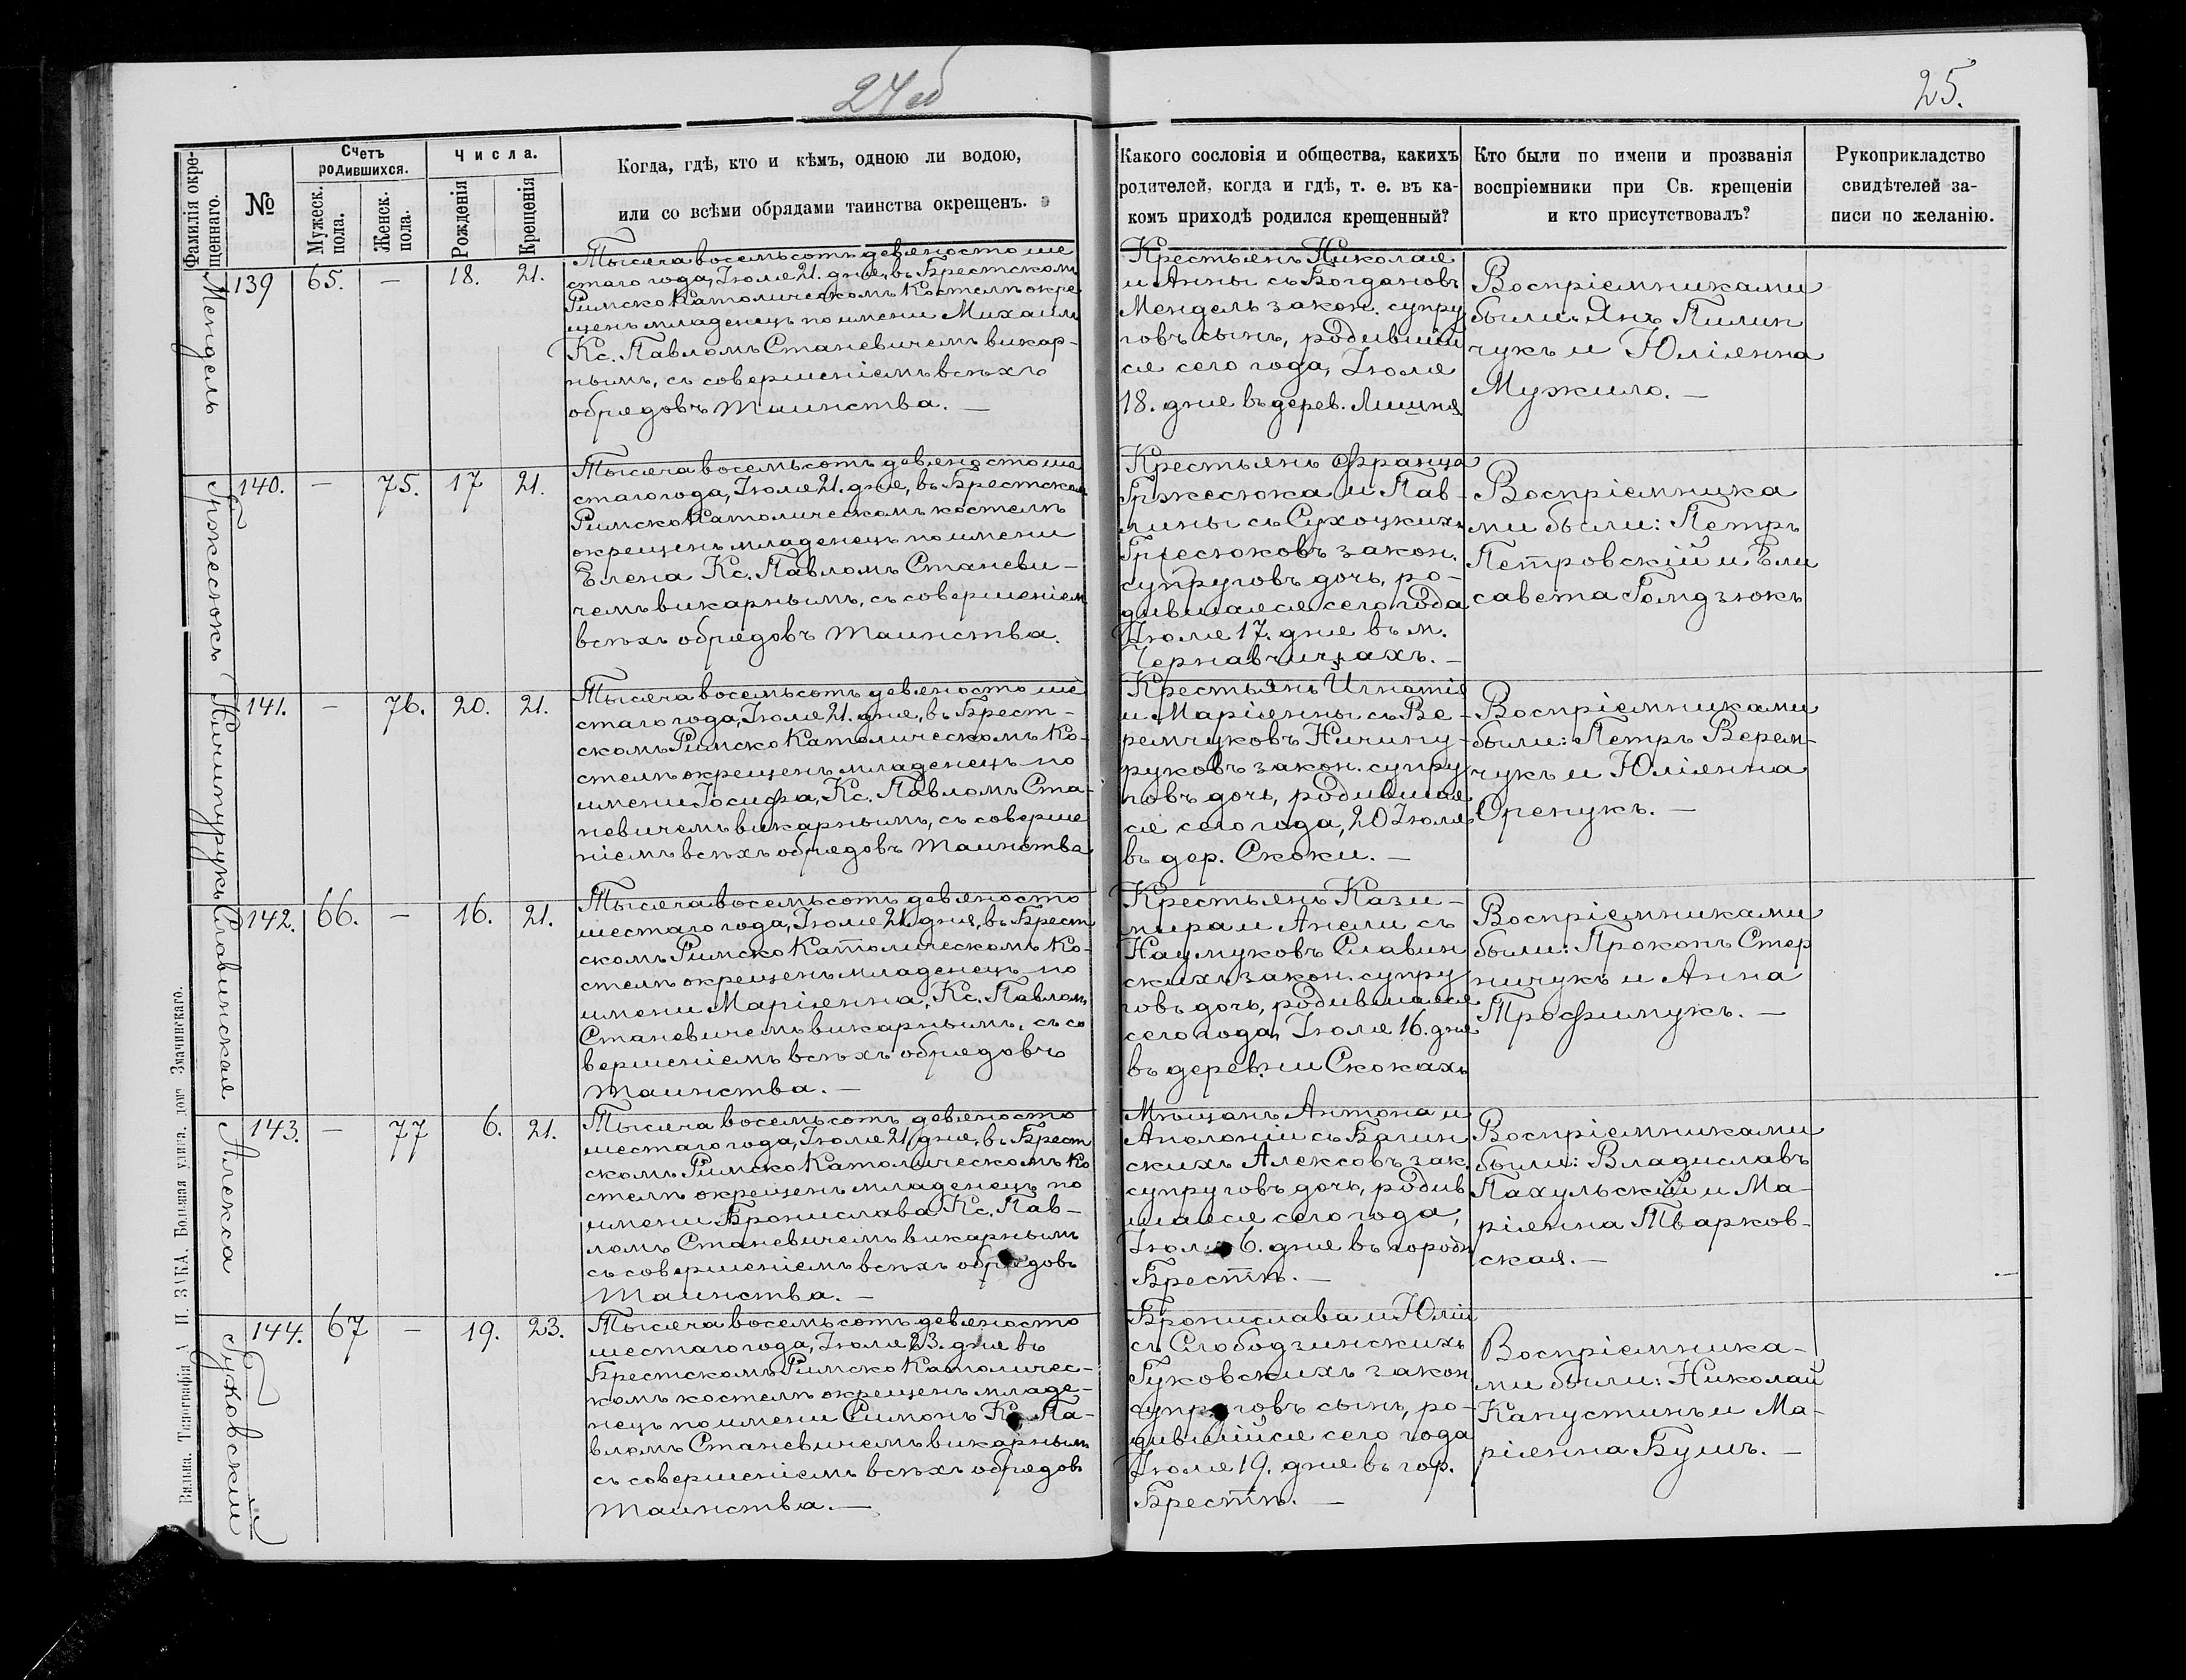 24об
25.
Фамилія окре-
щеннаго.
№
Счетъ
родившихся.
Мужеск.
пола.
Женск.
пола.
Числа.
Рожденія
Крещенія
Когда, гдѣ, кто и кѣмъ, одною ли водою,
или со всѣми обрядами таинства окрещенъ.
Какого сословія и общества, какихъ
родителей, когда и гдѣ, т. е. въ ка-
комъ приходѣ родился крещенный?
Кто были по имени и прозванія
воспріемники при Св. крещеніи
и кто присутствовалъ?
Рукоприкладство
свидѣтелей за-
писи по желанію.
Мендель
139 65. — 18. 21.
Тысяча восемьсотъ девяносто ше
стаго года, Іюля 21. дня, въ Брестскомъ
Римско Католическомъ Костелѣ окре
щенъ младенецъ по имени Михаилъ
Кс. Павломъ Станевичемъ викар-
нымъ, съ совершеніемъ всѣхъ
обрядовъ Таинства. —
Крестьянъ Николая
и Анны съ Богдановъ
Мендель закон. супру
говъ сынъ, родившій
ся сего года, Іюля
18. дня въ дерев. Лишня
Воспріемниками
были Янъ Пилип
чукъ и Юліянна
Мужило. —
Гржесюкъ
140. — 75. 17 21.
Тысяча восемьсотъ девяносто ше
стаго года, Іюля 21. дня, въ Брестском
Римско Католическомъ костелѣ
окрещенъ младенецъ по имени
Елена Кс. Павломъ Станеви-
чемъ викарнымъ, съ совершеніем
всѣхъ обрядовъ Таинства.
Крестьянъ Франца
Гржесюка и Пав-
лины съ Сухоцкихъ
Гржесюковъ закон.
супруговъ дочь, ро-
дившаяся сего года
Іюля 17. дня въ м.
Чернавчицахъ. —
Воспріемника
ми были: Петръ
Петровскій и Ели
савета Гомдзюкъ
Ничипурукъ
141. — 76. 20. 21.
Тысяча восемьсотъ девяносто ше
стаго года, Іюля 21. дня, въ Брест-
скомъ Римско Католическомъ Ко-
стелѣ окрещенъ младенецъ по
имени Іосифа, Кс. Павломъ Ста-
невичемъ викарнымъ, съ соверше
ніемъ всѣхъ обрядовъ Таинства
Крестьянъ Игнатія
и Маріянны съ Ве-
ремчуковъ Ничипу-
руковъ закон. супру
говъ дочь, родившая
ся сего года, 20 Іюля
въ дер. Скоки. —
Воспріемниками
были: Петръ Верем-
чукъ и Юліянна
Оренукъ. —
Славинская
142. 66. — 16. 21.
Тысяча восемьсотъ девяносто
шестаго года, Іюля 21. дня, въ Брест
скомъ Римско Католическомъ Ко-
стелѣ окрещенъ младенецъ по
имени Маріянна, Кс. Павломъ
Станевичемъ викарнымъ, съ со
вершеніемъ всѣхъ обрядовъ
Таинства. —
Крестьянъ Кази-
мира и Анели съ
Наумуковъ Славин
скихъ закон. супру
говъ дочь, родившаяся
сего года, Іюля 16. дня
въ деревни Скокахъ
Воспріемниками
были: Прокопъ Стер
ничукъ и Анна
Трофимукъ. —
Алекса
143. — 77 6. 21.
Тысяча восемьсотъ девяносто
шестаго года, Іюля 21. дня, въ Брест
скомъ Римско Католическомъ Ко
стелѣ окрещенъ младенецъ по
имени Бронислава Кс. Пав-
ломъ Станевичемъ викарнымъ
съ совершеніемъ всѣхъ обрядовъ
Таинства. —
Мѣщанъ Антона и
Аполоніи съ Багин
скихъ Алексовъ зак.
супруговъ дочь, родив
шаяся сего года,
Іюля 6. дня въ городѣ
Брестѣ. —
Воспріемниками
были: Владиславъ
Пахульскій и Ма-
ріянна Тварков-
ская. —
Гуковскій
144. 67 — 19. 23.
Тысяча восемьсотъ девяносто
шестаго года, Іюля 23. дня въ
Брестскомъ Римско Католичес-
комъ костелѣ окрещенъ младе-
нецъ по имени Симонъ Кс. Па-
вломъ Станевичемъ викарнымъ
съ совершеніемъ всѣхъ обрядовъ
Таинства. —
Бронислава и Юліи
съ Слободзинскихъ
Гуковскихъ закон
супруговъ сынъ, ро-
дившійся сего года
Іюля 19. дня въ гор.
Брестѣ. —
Воспріемника-
ми были: Николай
Капустинъ и Ма-
ріянна Бушъ. —
Вильна. Типографія А. Н. ЗАКА. Большая улица, домъ Змачинскаго.